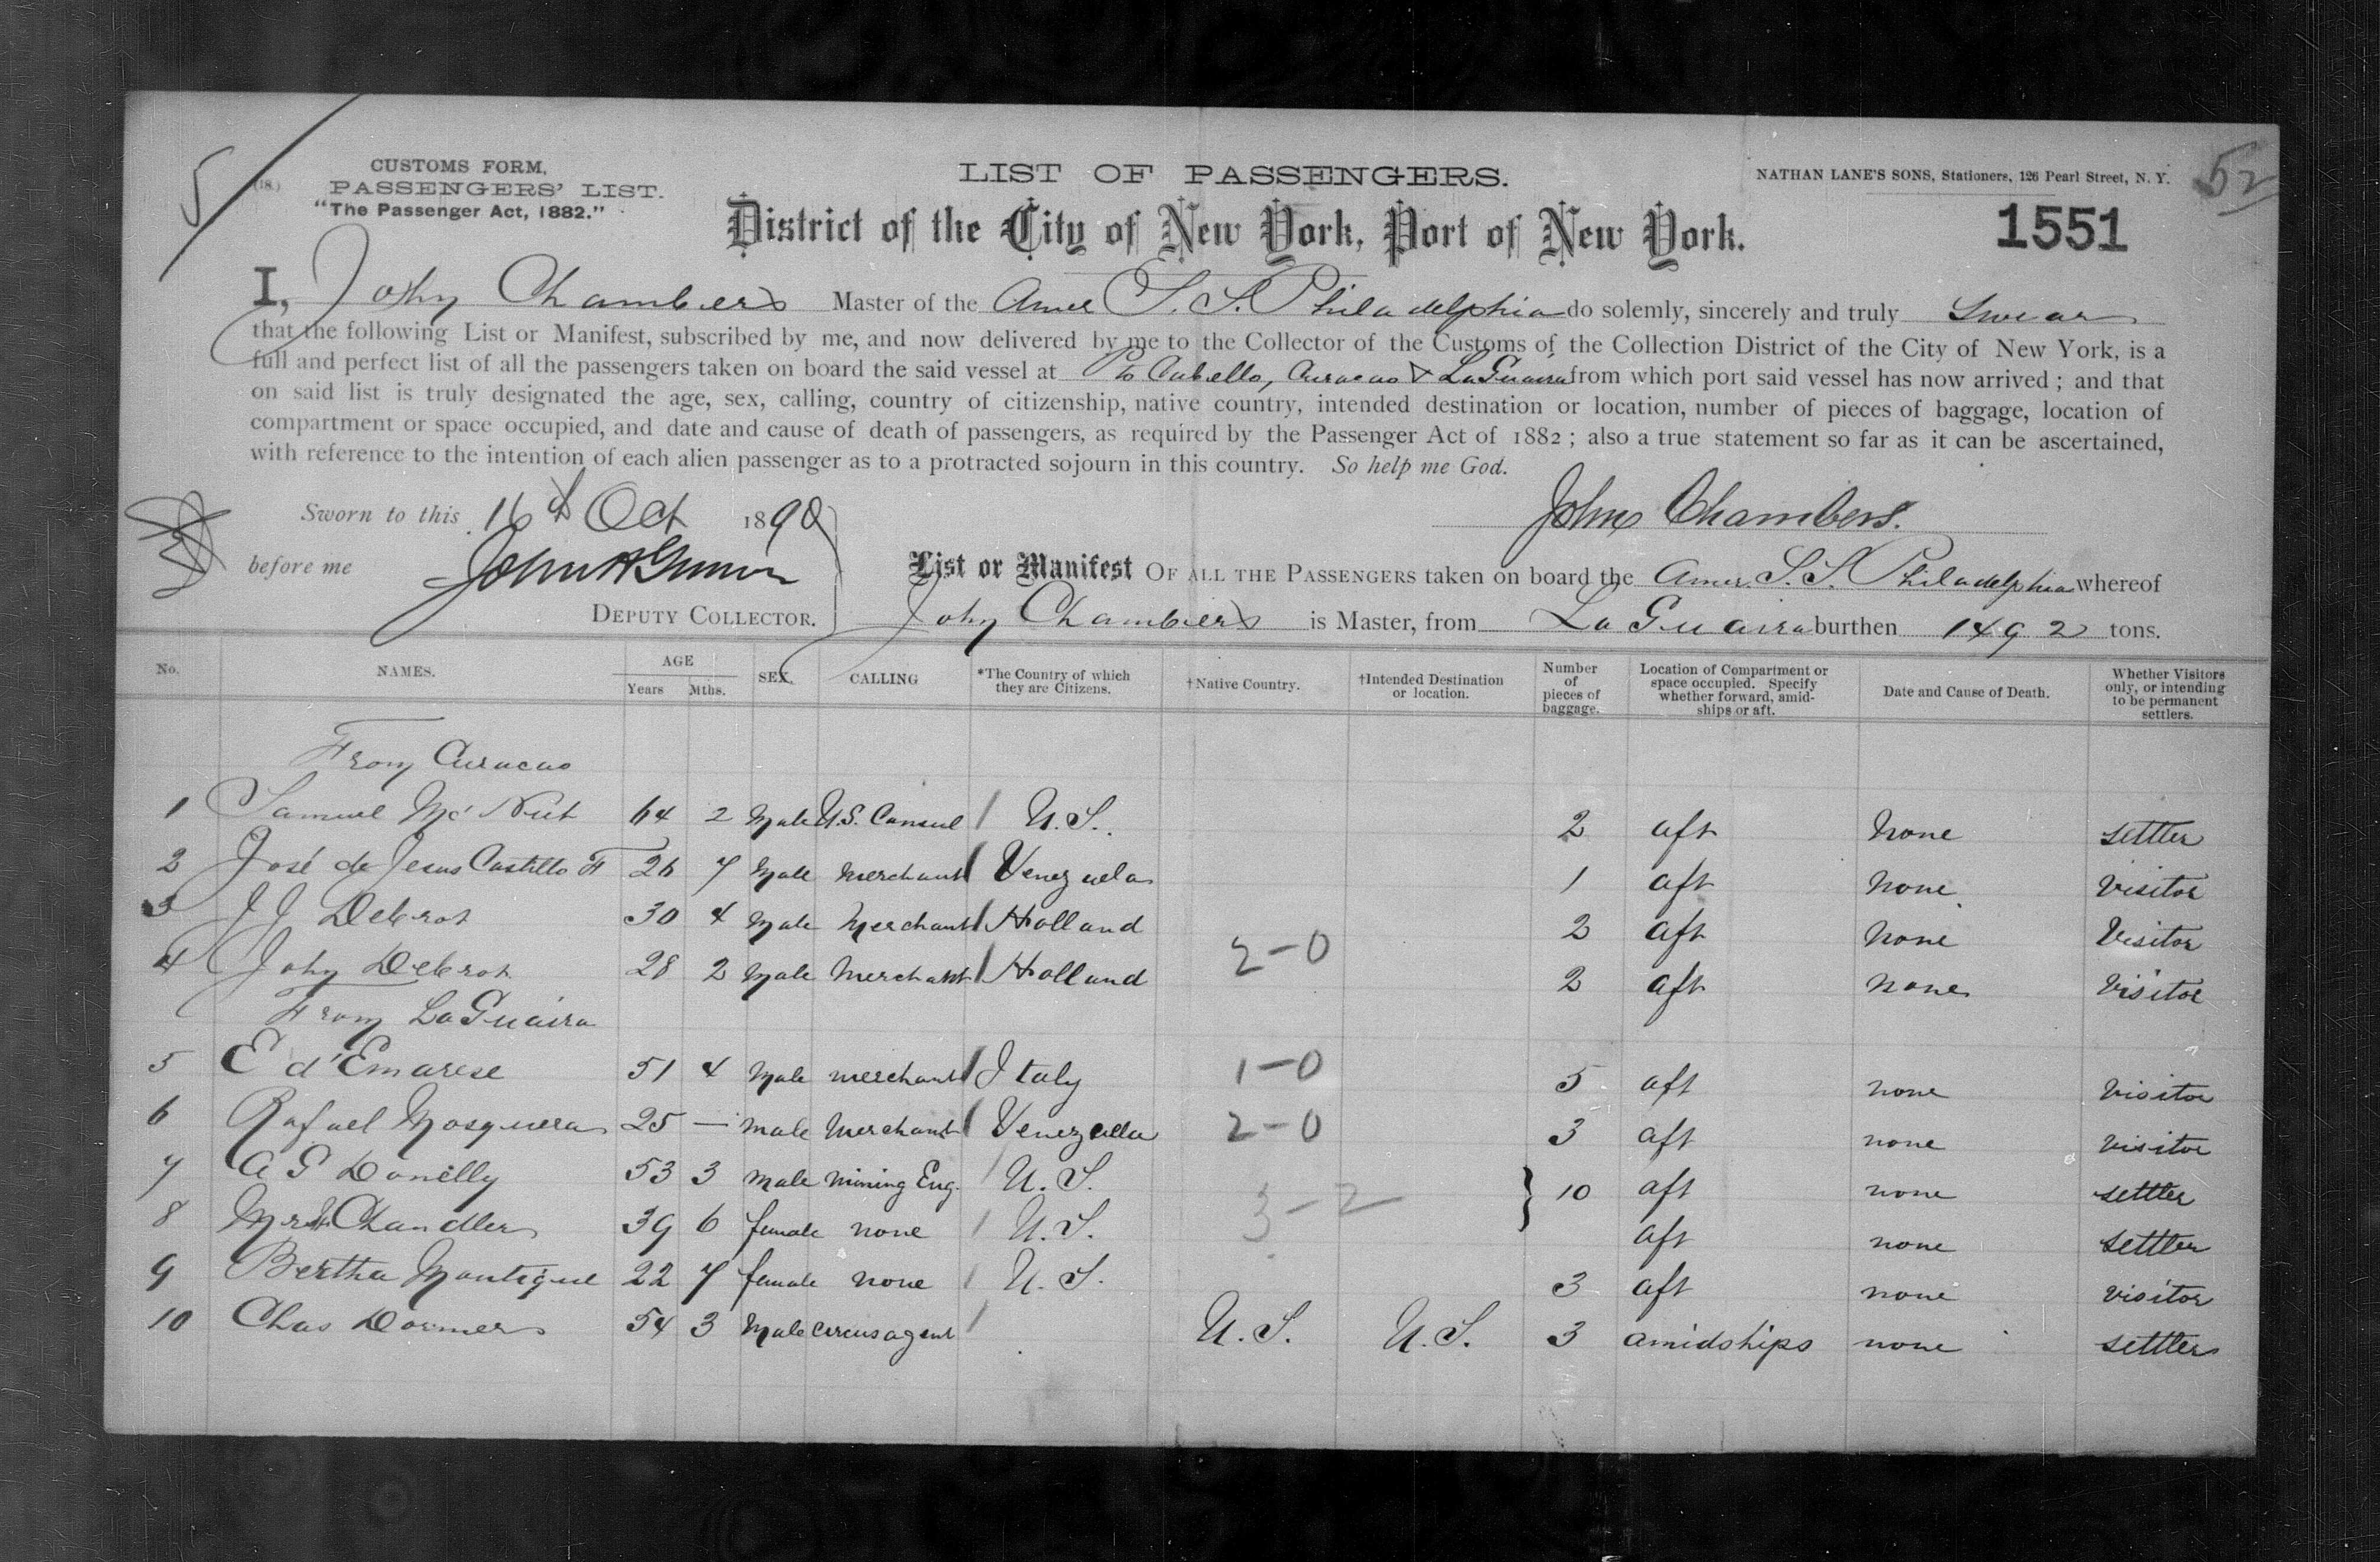 5
52
(18.)
CUSTOMS FORM,
PASSENGERS' LIST.
"The Passenger Act, 1882."
LIST OF PASSENGERS.
NATHAN LANE'S SONS, Stationers, 126 Pearl Street, N. Y.
District of the City of New York, Port of New York.
1551
I, John Chambers Master of the Amer S. S. Philadelphia do solemly, sincerely and truly Swear
that the following List or Manifest, subscribed by me, and now delivered by me to the Collector of the Customs of the Collection District of the City of New York, is a
full and perfect list of all the passengers taken on board the said vessel at Pto Cabello, Curacao & La Guaira from which port said vessel has now arrived ; and that
on said list is truly designated the age, sex, calling, country of citizenship, native country, intended destination or location, number of pieces of baggage, location of
compartment or space occupied, and date and cause of death of passengers, as required by the Passenger Act of 1882 ; also a true statement so far as it can be ascertained,
with reference to the intention of each alien passenger as to a protracted sojourn in this country. So help me God.
Sworn to this 16th Oct 1890
John Chambers.
before me John
DEPUTY COLLECTOR.
List or Manifest OF ALL THE PASSENGERS taken on board the Amer. S. S. Philadelphia whereof
John Chambers is Master, from La Guaira burthen 1492 tons.
No. NAMES. AGE Years Mths. SEX. CALLING *The Country of which they are Citizens. †Native Country. †Intended Destination or location. Number of pieces of baggage. Location of Compartment or space occupied. Specify whether forward, amidships or aft. Date and Cause of Death. Whether Visitors only, or intending to be permanent settlers.
From Curacao
1 Samuel Mc Nut 64 2 Male U.S. Consul / U.S. 2 aft None settler
2 José de Jesus Castillo F 26 7 Male Merchant / Venezuela 1 aft None visitor
3 J J Debrot 30 4 Male Merchant / Holland 2 aft None Visitor
4 John Debrot 28 2 Male Merchant / Holland 2-0 2 aft None Visitor
From La Guaira
5 E d'Emarese 51 4 Male merchant / Italy 1-0 5 aft none visitor
6 Rafael Mosquera 25 — male Merchant / Venezuela 2-0 3 aft none visitor
7 A G Donelly 53 3 male mining Eng. / U.S. } 10 aft none settler
8 Mrs Chandler 39 6 female none / U.S. 3-2 aft none settler
9 Bertha Montigue 22 7 female none / U.S. 3 aft none visitor
10 Chas Dormer 54 3 Male circus agent / U.S. U.S. 3 amidships none settler